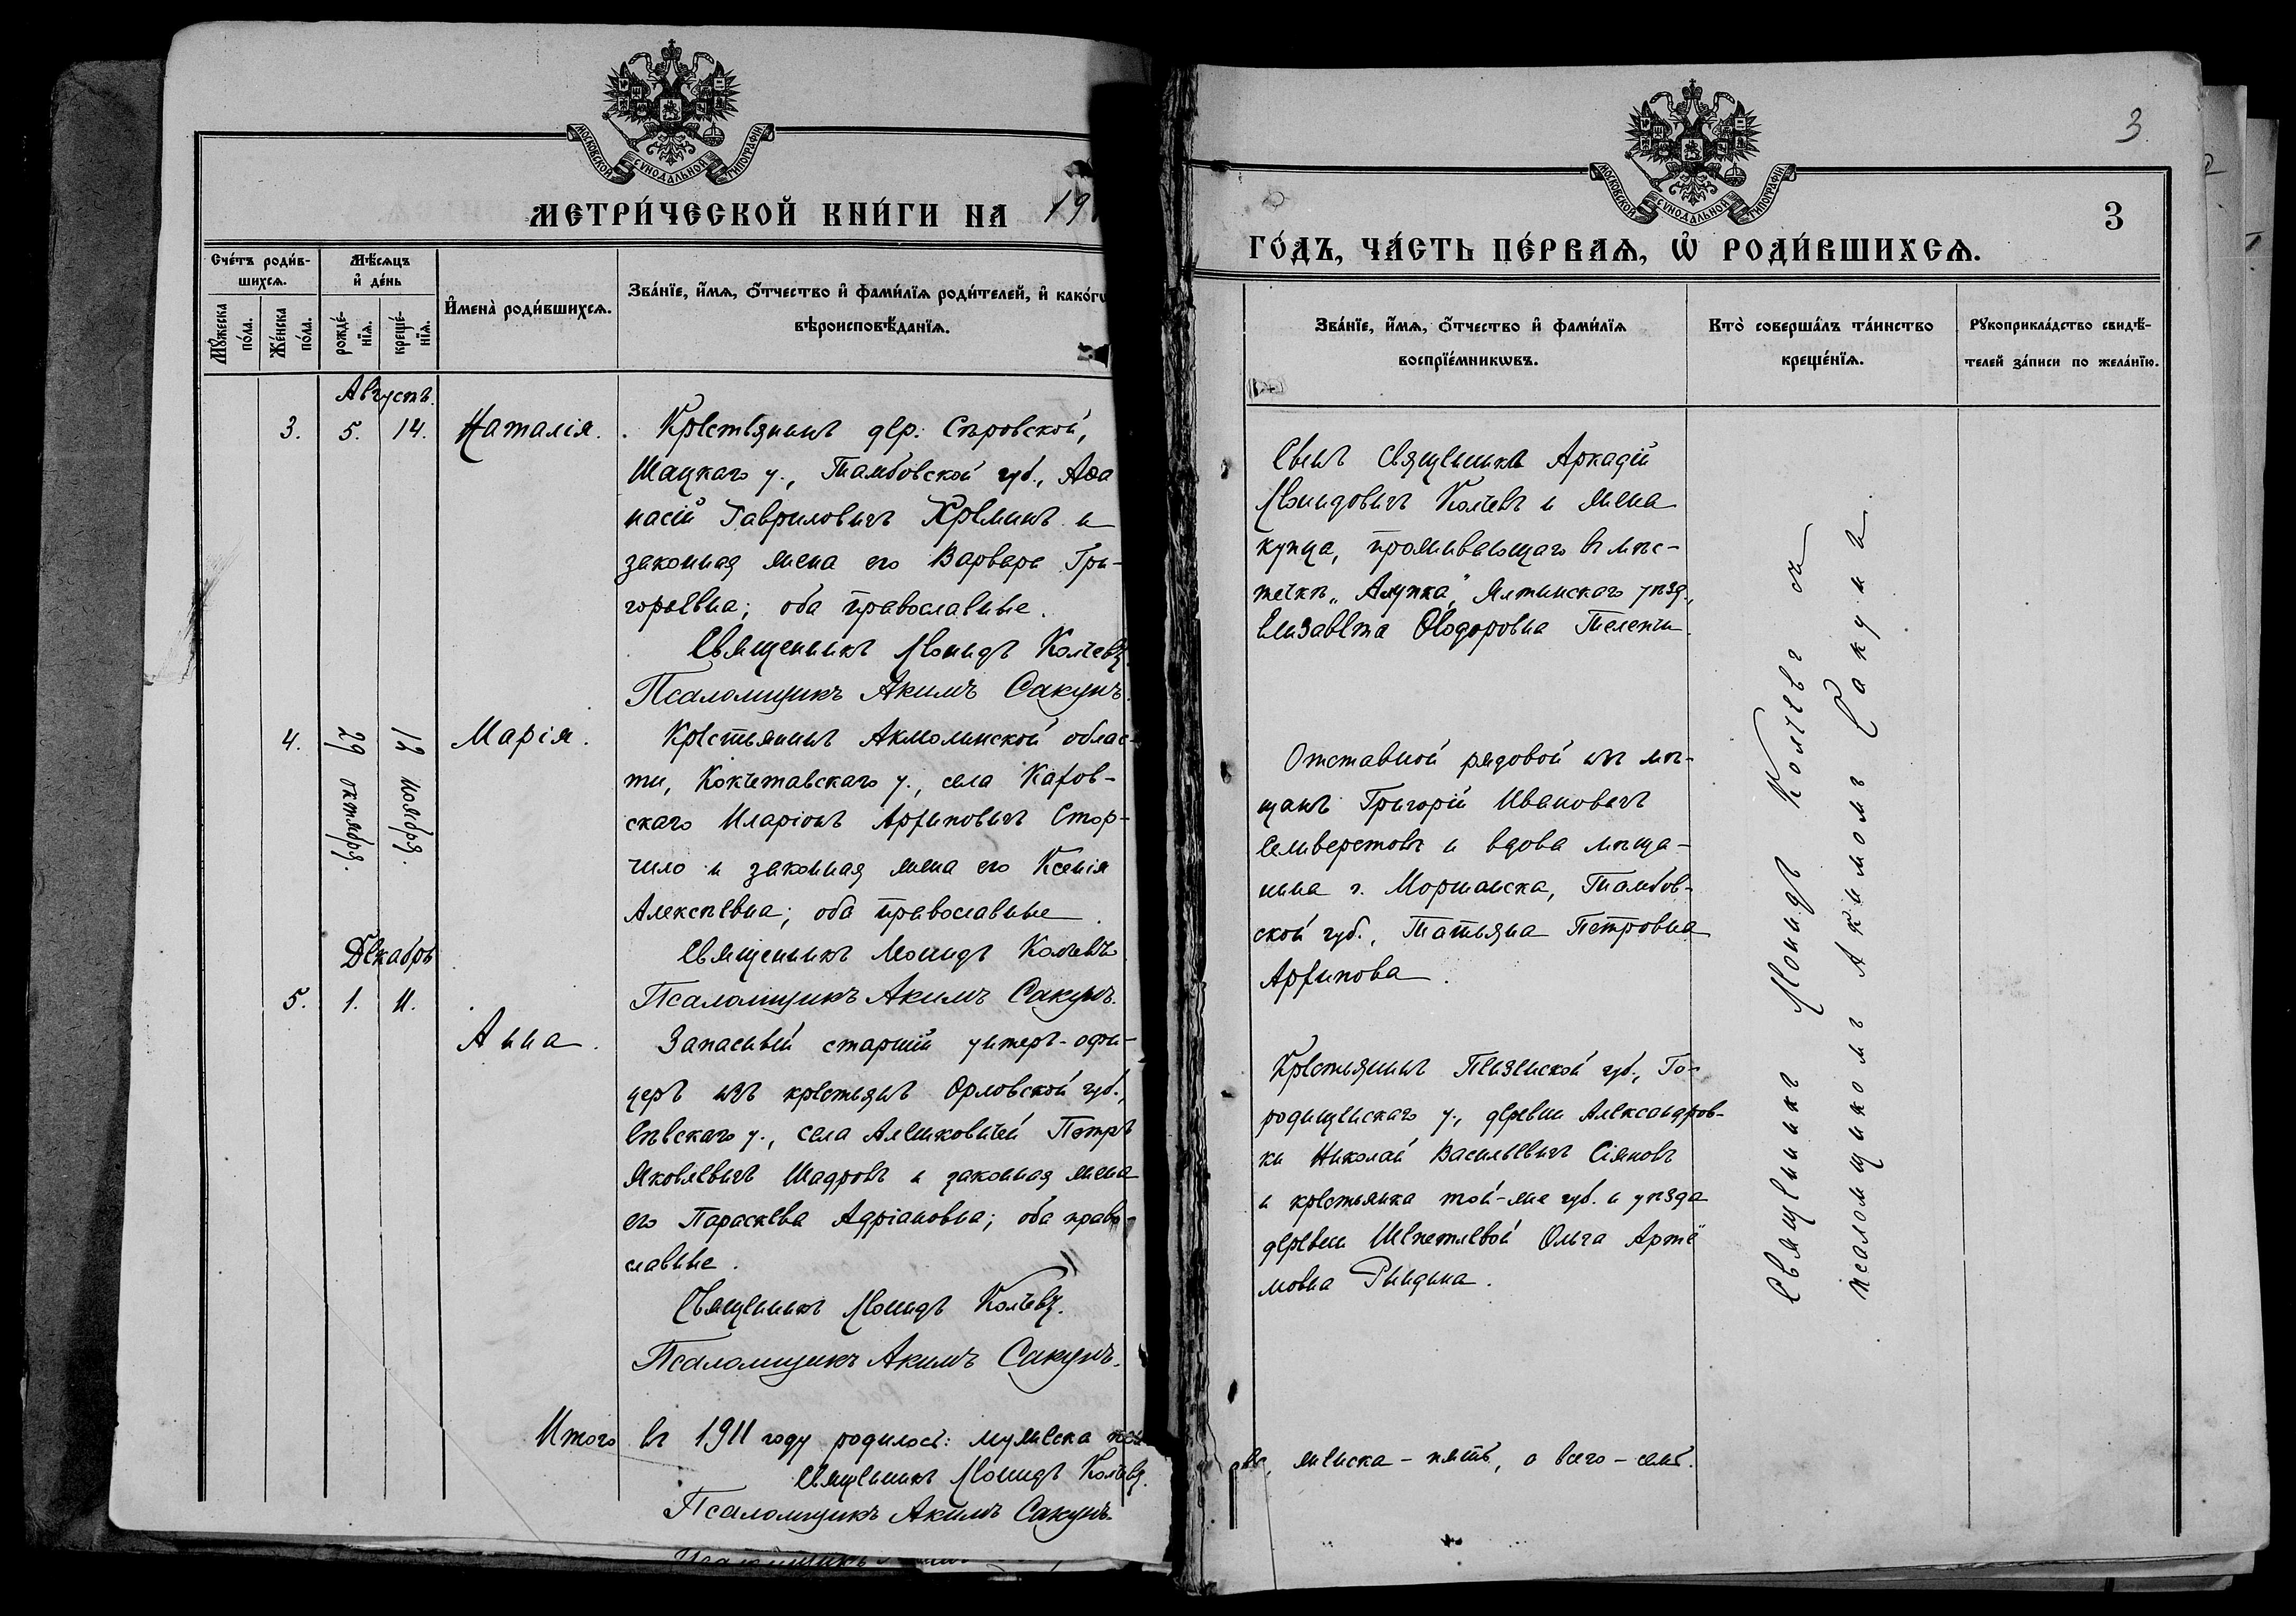 МОСКОВСКОЙ СѴНОДАЛЬНОЙ ТИПОГРАФІИ
МЕТРИ́ЧЕСКОЙ КНИ́ГИ НА 19
Сче́тъ роди́в-
шихсѧ.
Мѣ́сѧцъ
и҆ де́нь
Мꙋ́жеска
по́ла.
Же́нска
по́ла.
рожде́-
нїѧ.
креще́-
нїѧ.
И҆мена̀ роди́вшихсѧ.
Зва́нїе, и҆́мѧ, ѻ҆́тчество и҆ фами́лїѧ роди́телей, и҆ како́гѡ
вѣроисповѣ́данїѧ.
Августъ.
3. 5. 14. Наталія.
Крестьянинъ дер. Сѣровской,
Шацкаго у., Тамбовской губ., Аѳа
насій Гавриловичъ Кремнев и
законная жена его Варвара Гри-
горьевна; оба православные.
Священникъ Леонидъ Колчевъ
Псаломщикъ Акимъ Сакунъ.
4. 29 октября. 12 ноября. Марія.
Крестьянинъ Акмолинской облас-
ти, Кокчетавскаго у., села
скаго Иларіонъ Архиповичъ Стор-
чило и законная жена его Ксенія
Алексѣевна; оба православные.
Священникъ Леонидъ Колчевъ
Псаломщикъ Акимъ Сакунъ.
Декабрь
5. 1. 11.
Анна.
Запасный старшій унтеръ-офи-
церъ изъ крестьянъ Орловской губ.,
Сѣвскаго у., села Алешковичей Петръ
Яковлевичъ Шадровъ и законная жена
его Параскева Адріановна; оба право-
славные.
Священникъ Леонидъ Колчевъ.
Псаломщикъ Акимъ Сакунъ.
Итого въ 1911 году родилось: мужеска
Священникъ Леонидъ Колчевъ.
Псаломщикъ Акимъ Сакунъ.
МОСКОВСКОЙ СѴНОДАЛЬНОЙ ТИПОГРАФІИ
3.
3
ГО́ДЪ, ЧА́СТЬ ПЕ́РВАѦ, Ѡ҆ РОДИ́ВШИХСѦ.
Зва́нїе, и҆́мѧ, ѻ҆́тчество и҆ фами́лїѧ
воспрїе́мникѡвъ.
Кто̀ соверша́лъ та́инство
креще́нїѧ.
Рꙋкоприкла́дство свидѣ́-
телей за́писи по жела́нїю.
Сынъ священника Аркадій
Леонидовичъ Колчевъ и жена
купца, проживающаго въ мѣс-
течкѣ „Алупка", Ялтинскаго уѣзд.,
Елизавета Ѳеодоровна
Отставной рядовой изъ мѣ-
щанъ Григорій Ивановичъ
Селиверстовъ и вдова мѣща-
нина г. Моршанска, Тамбов-
ской губ., Татьяна Петровна
Архипова.
Крестьянинъ Пензенской губ., Го-
родищенскаго у., деревни Александров-
ки Николай Васильевичъ Сіяновъ
и крестьянка той-же губ. и уѣзда
деревни Шепетлевой Ольга Артё
мовна Рындина.
Священникъ Леонидъ Колчевъ съ
псаломщикомъ Акимомъ Сакуна.
женска - пять, а всего - семь.